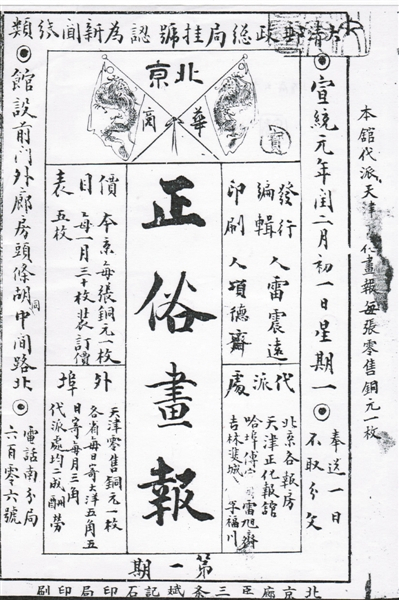 大清郵政總局挂號認為新聞紙類
北京
華商
本館代派天津
畫報每張零售銅元一枚
◉宣統元年閏二月初一日星期一◉
奉送一日
不取分文
發行
編輯
印刷
人雷震遠
人項德齋
代派處
北京各報房
天津正化報館
哈埠傅
雷旭齋
吉林裴城
李福川
正俗畫報
價目表
本京每張銅元一枚
每一月三十枚裝訂價
五枚
外埠
天津零售銅元一枚
各省每日寄洋五角五
日寄每月三角
代派處均二成酬勞
◉館設前門外廊房頭條胡同中間路北◉
電話南分局
六百零六號
第一期
北京廠西三
斌記石印局印刷